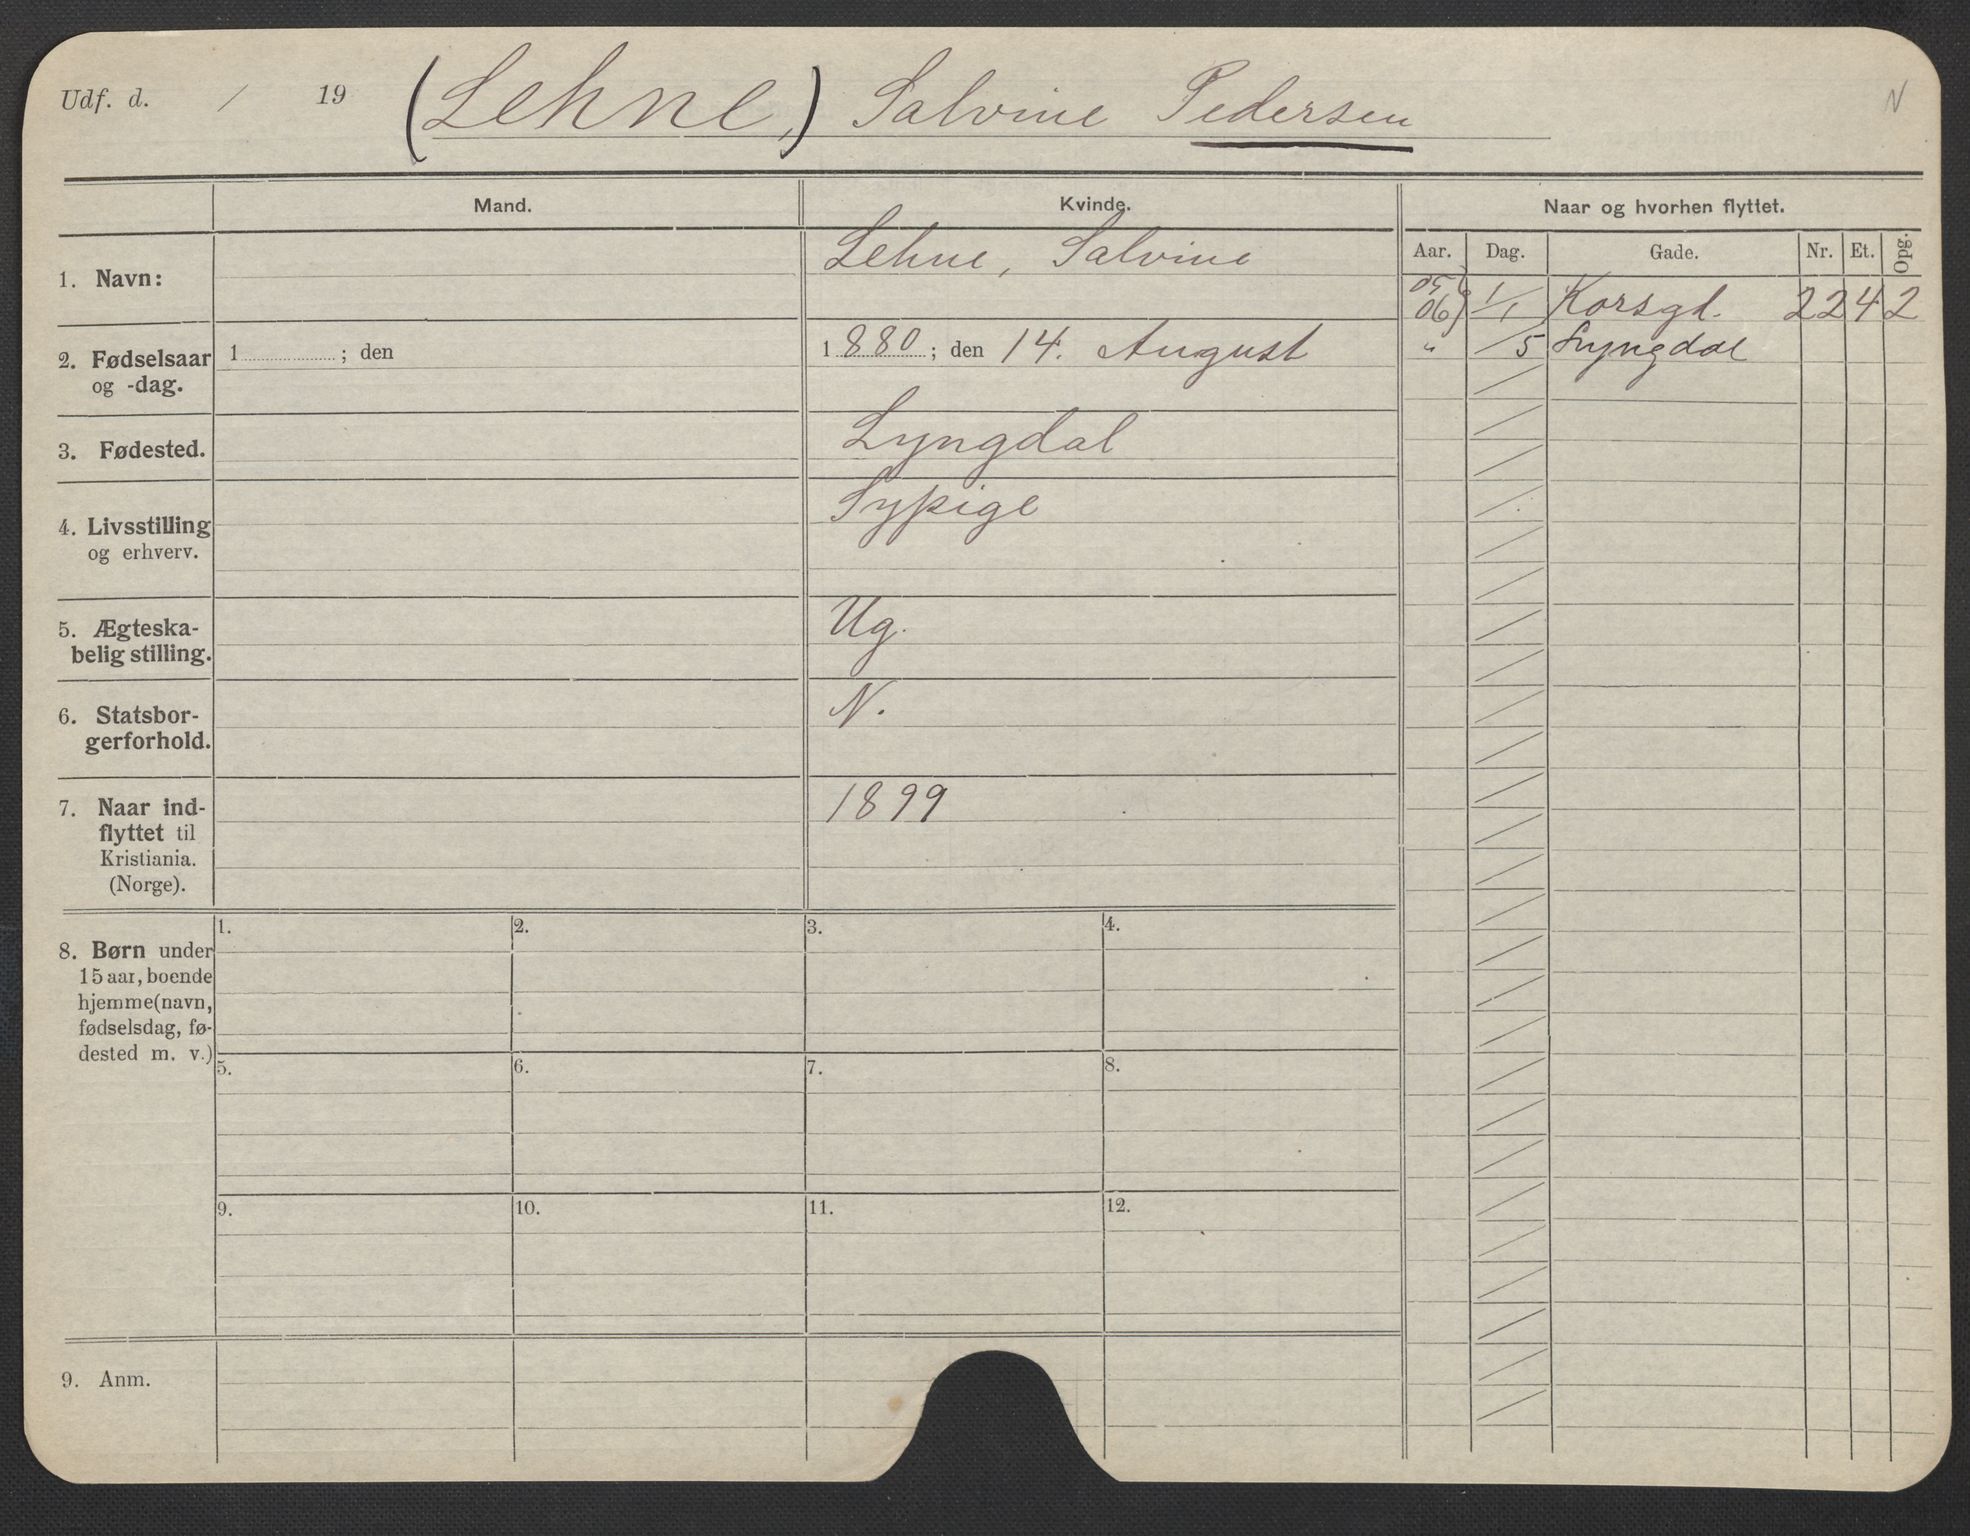 Udf. d. / 19 (Lehne,) Salvine Pedersen N
Mand. Kvinde. Naar og hvorhen flyttet.
Aar. Dag. Gade. Nr. Et. Opg.
1. Navn: Lehne, Salvine
05
06 1/1 Korsgd. 22 4 2
" /5 Lyngdal
2. Fødselsaar
og -dag.
1 ; den
1880 ; den 14. August
3. Fødested. Lyngdal
4. Livsstilling
og erhverv.
Sypige
5. Ægteska-
belig stilling.
Ug.
6. Statsbor-
gerforhold.
N.
7. Naar ind-
flyttet til
Kristiania.
(Norge).
1899
8. Børn under
15 aar, boende
hjemme (navn,
fødselsdag, fø-
dested m. v.)
1. 2. 3. 4.
5. 6. 7. 8.
9. 10. 11. 12.
9. Anm.